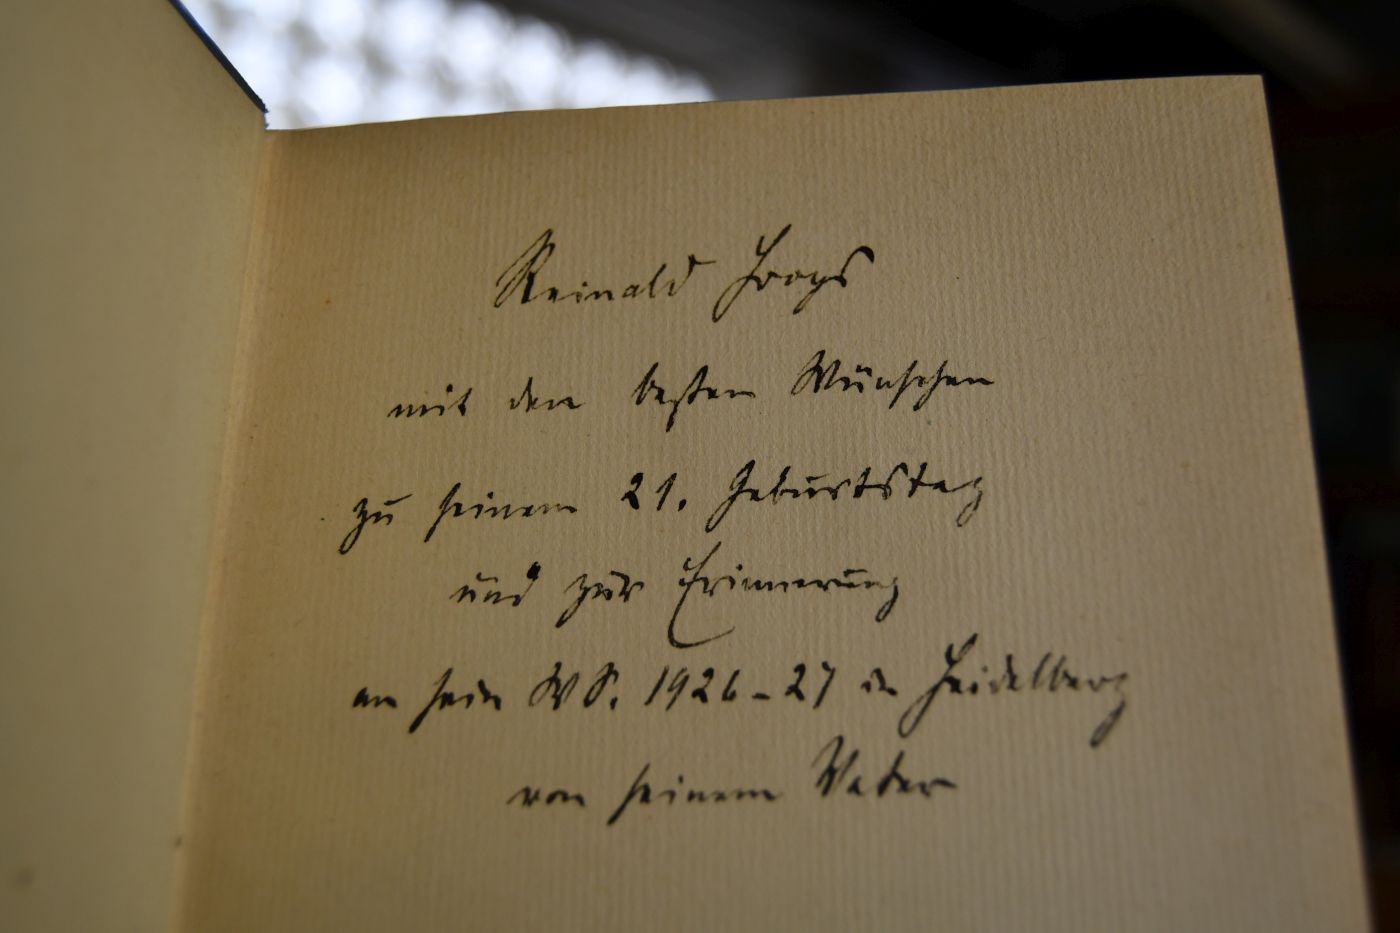 Reinald Hoops
mit den besten Wünschen
zu seinem 21. Geburtstag
und zur Erinnerung
an sein WS. 1926-27 in Heidelberg
von seinem Vater